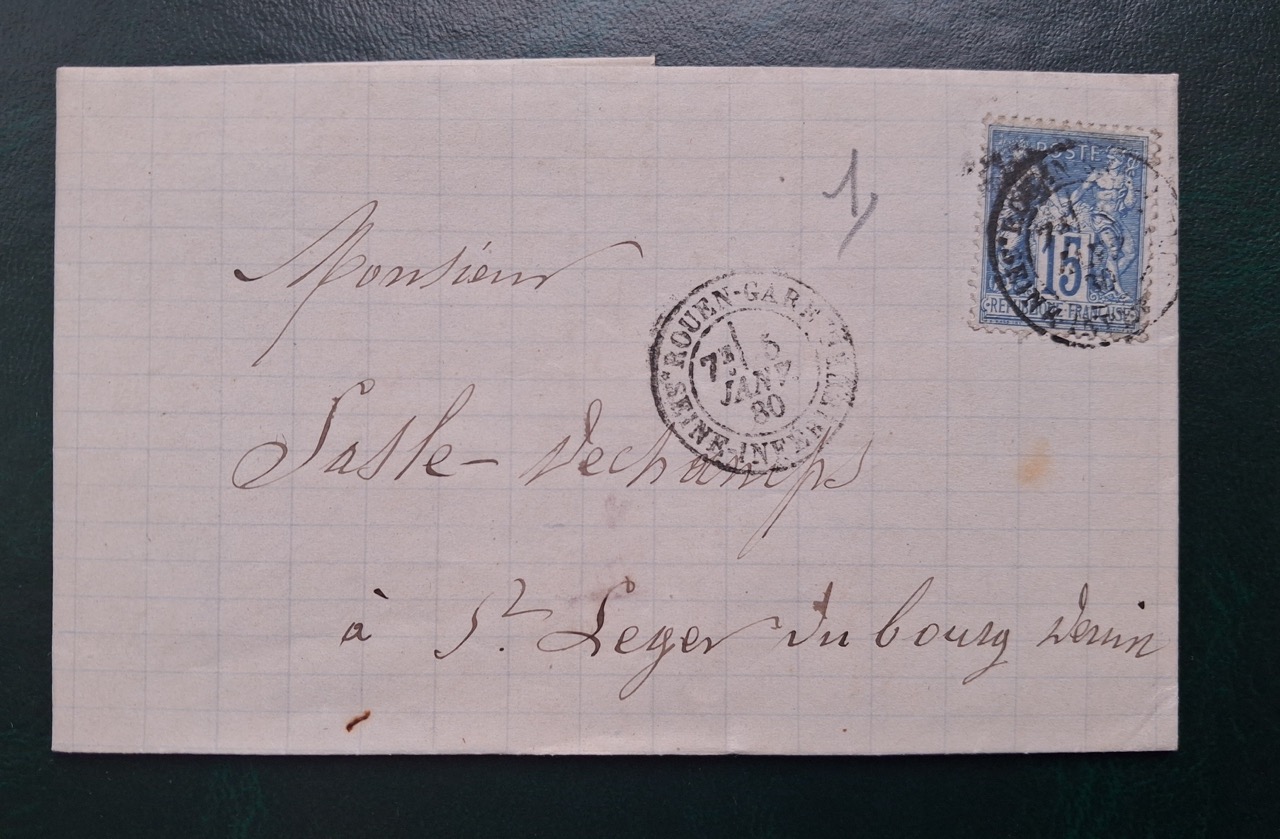 1
POSTE
15
REPUBLIQUE FRANÇAISE
Monsieur
ROUEN-GARE
7E 5
JANV.
80
SEINE-INFERRE
Sasle-Dechamps
à St. Leger du bourg denin